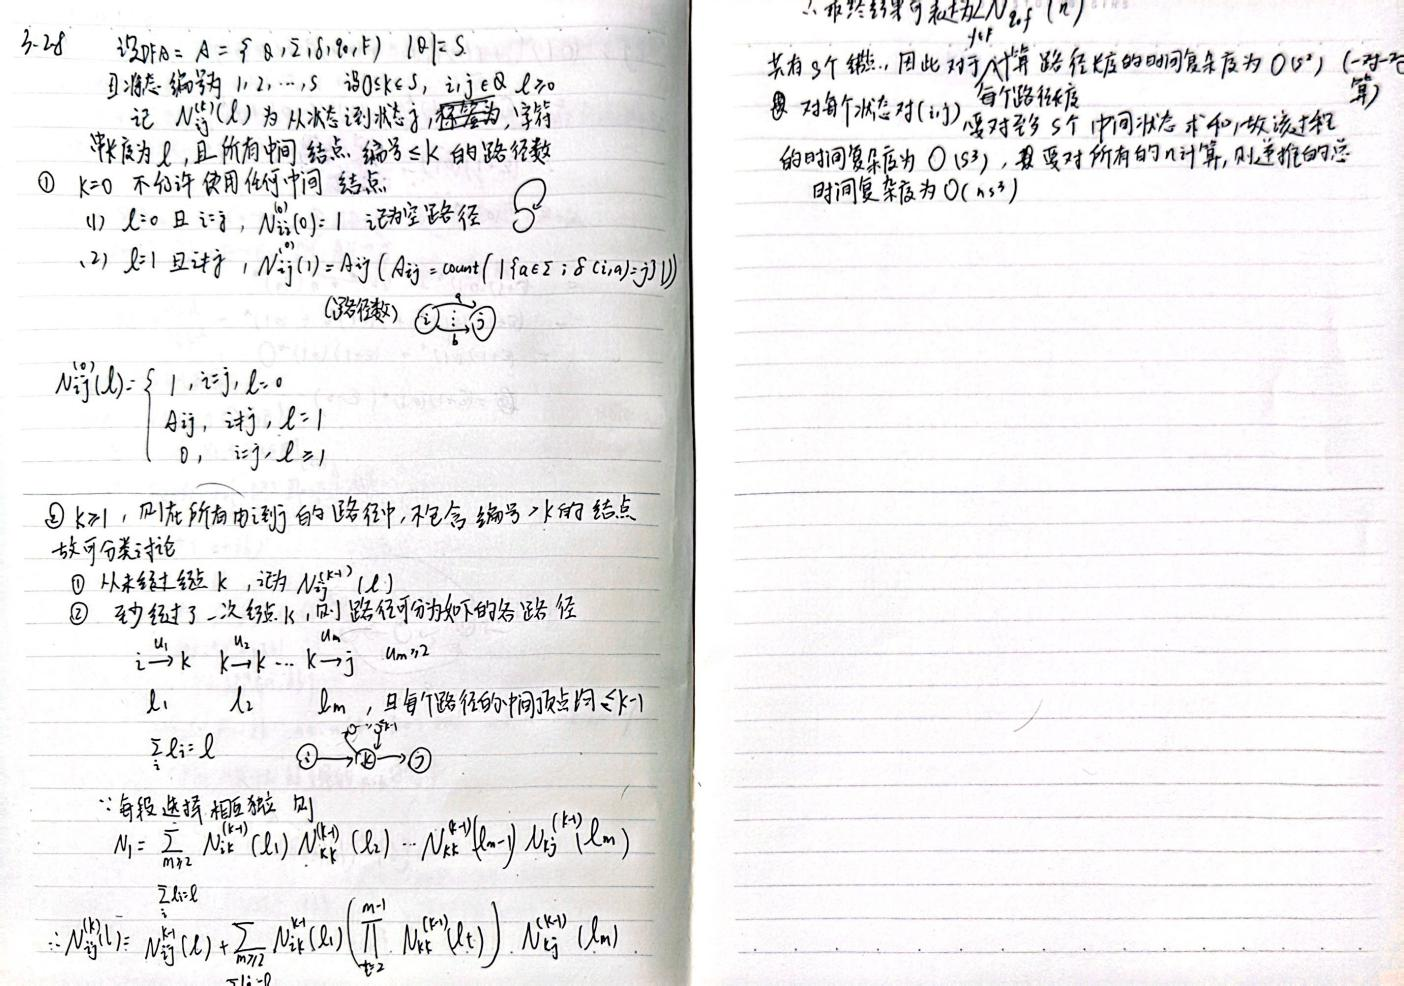 3-28 设DFA = A = { Q, Σ, δ, q₀, F) |Q| = S
且状态编号为 1, 2, ⋯, S 设0≤k≤S, i, j ∈ Q l≥0
记 N_{ij}^{(k)}(l) 为从状态i到状态j, 字符
串长度为 l, 且所有中间结点编号≤k 的路径数
① k=0 不允许使用任何中间结点
(1) l=0 且 i=j, N_{ii}^{(0)}(0)=1 记为空路径
(2) l=1 且 i≠j, N_{ij}^{(0)}(1) = A_{ij} (A_{ij} = count(|{a∈Σ; δ(i,a)=j}|))
(路径数) i ⋮ j
a
b
N_{ij}^{(0)}(l) = { 1, i=j, l=0
A_{ij}, i≠j, l=1
0, i=j, l≥1
② k≥1, 则在所有由i到j的路径中, 不包含编号>k的结点
故可分类讨论
① 从未经过结点k, 记为 N_{ij}^{(k-1)}(l)
② 至少经过了一次结点k, 则路径可分为如下的各路径
i →^{u₁} k k →^{u₂} k ⋯ k →^{u_m} j u_m≥2
l₁ l₂ l_m, 且每个路径的中间顶点均≤k-1
Σ_i l_i = l i k j k-1
∵每段选择相互独立 则
N₁ = Σ_{m≥2, Σ_i l_i=l} N_{ik}^{(k-1)}(l₁) N_{kk}^{(k-1)}(l₂) ⋯ N_{kk}^{(k-1)}(l_{m-1}) N_{kj}^{(k-1)}(l_m)
∴ N_{ij}^{(k)}(l) = N_{ij}^{k-1}(l) + Σ_{m≥2, Σl_i=l} N_{ik}^{k-1}(l₁) (∏_{t=2}^{m-1} N_{kk}^{(k-1)}(l_t)) N_{kj}^{(k-1)}(l_m)
∴ 最终结果可表达为Σ_{f∈F} N_{q₀f}(n)
共有S个结点, 因此对于每个路径长度计算路径长度的时间复杂度为O(s²) (一对一对算)
对每个状态对(i,j) 要对至多S个中间状态求和, 故该过程
的时间复杂度为O(s³), 要对所有的n计算, 则递推的总
时间复杂度为O(ns³)